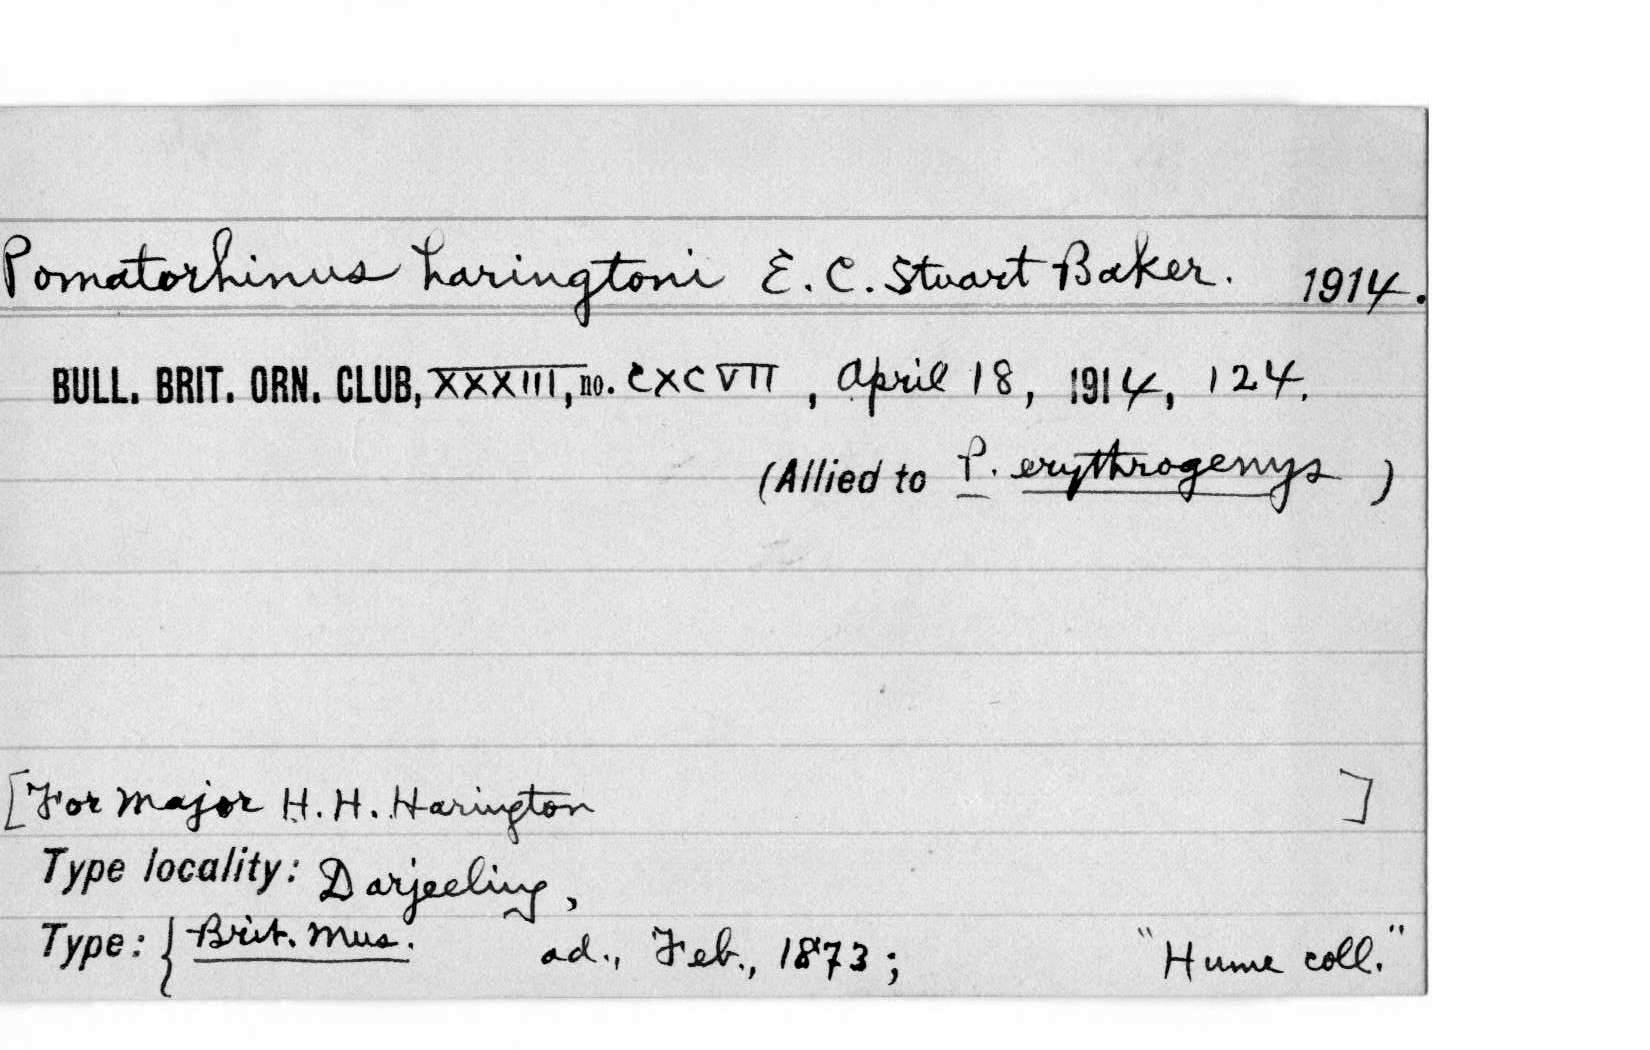 Pomatorhinus haringtoni E. C. Stuart Baker. 1914.
BULL. BRIT. ORN. CLUB, XXXIII, no. CXCVII, April 18, 1914, 124.
(Allied to P. erythrogenys )
[For Major H. H. Harington ]
Type locality: Darjeeling,
Type: { Brit. Mus. ad., Feb., 1873; "Hume coll."